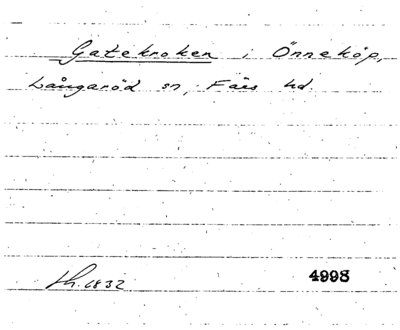 Gatekroken i Önneköp,
Långaröd sn, Färs hd.
Lh. 1832 4998